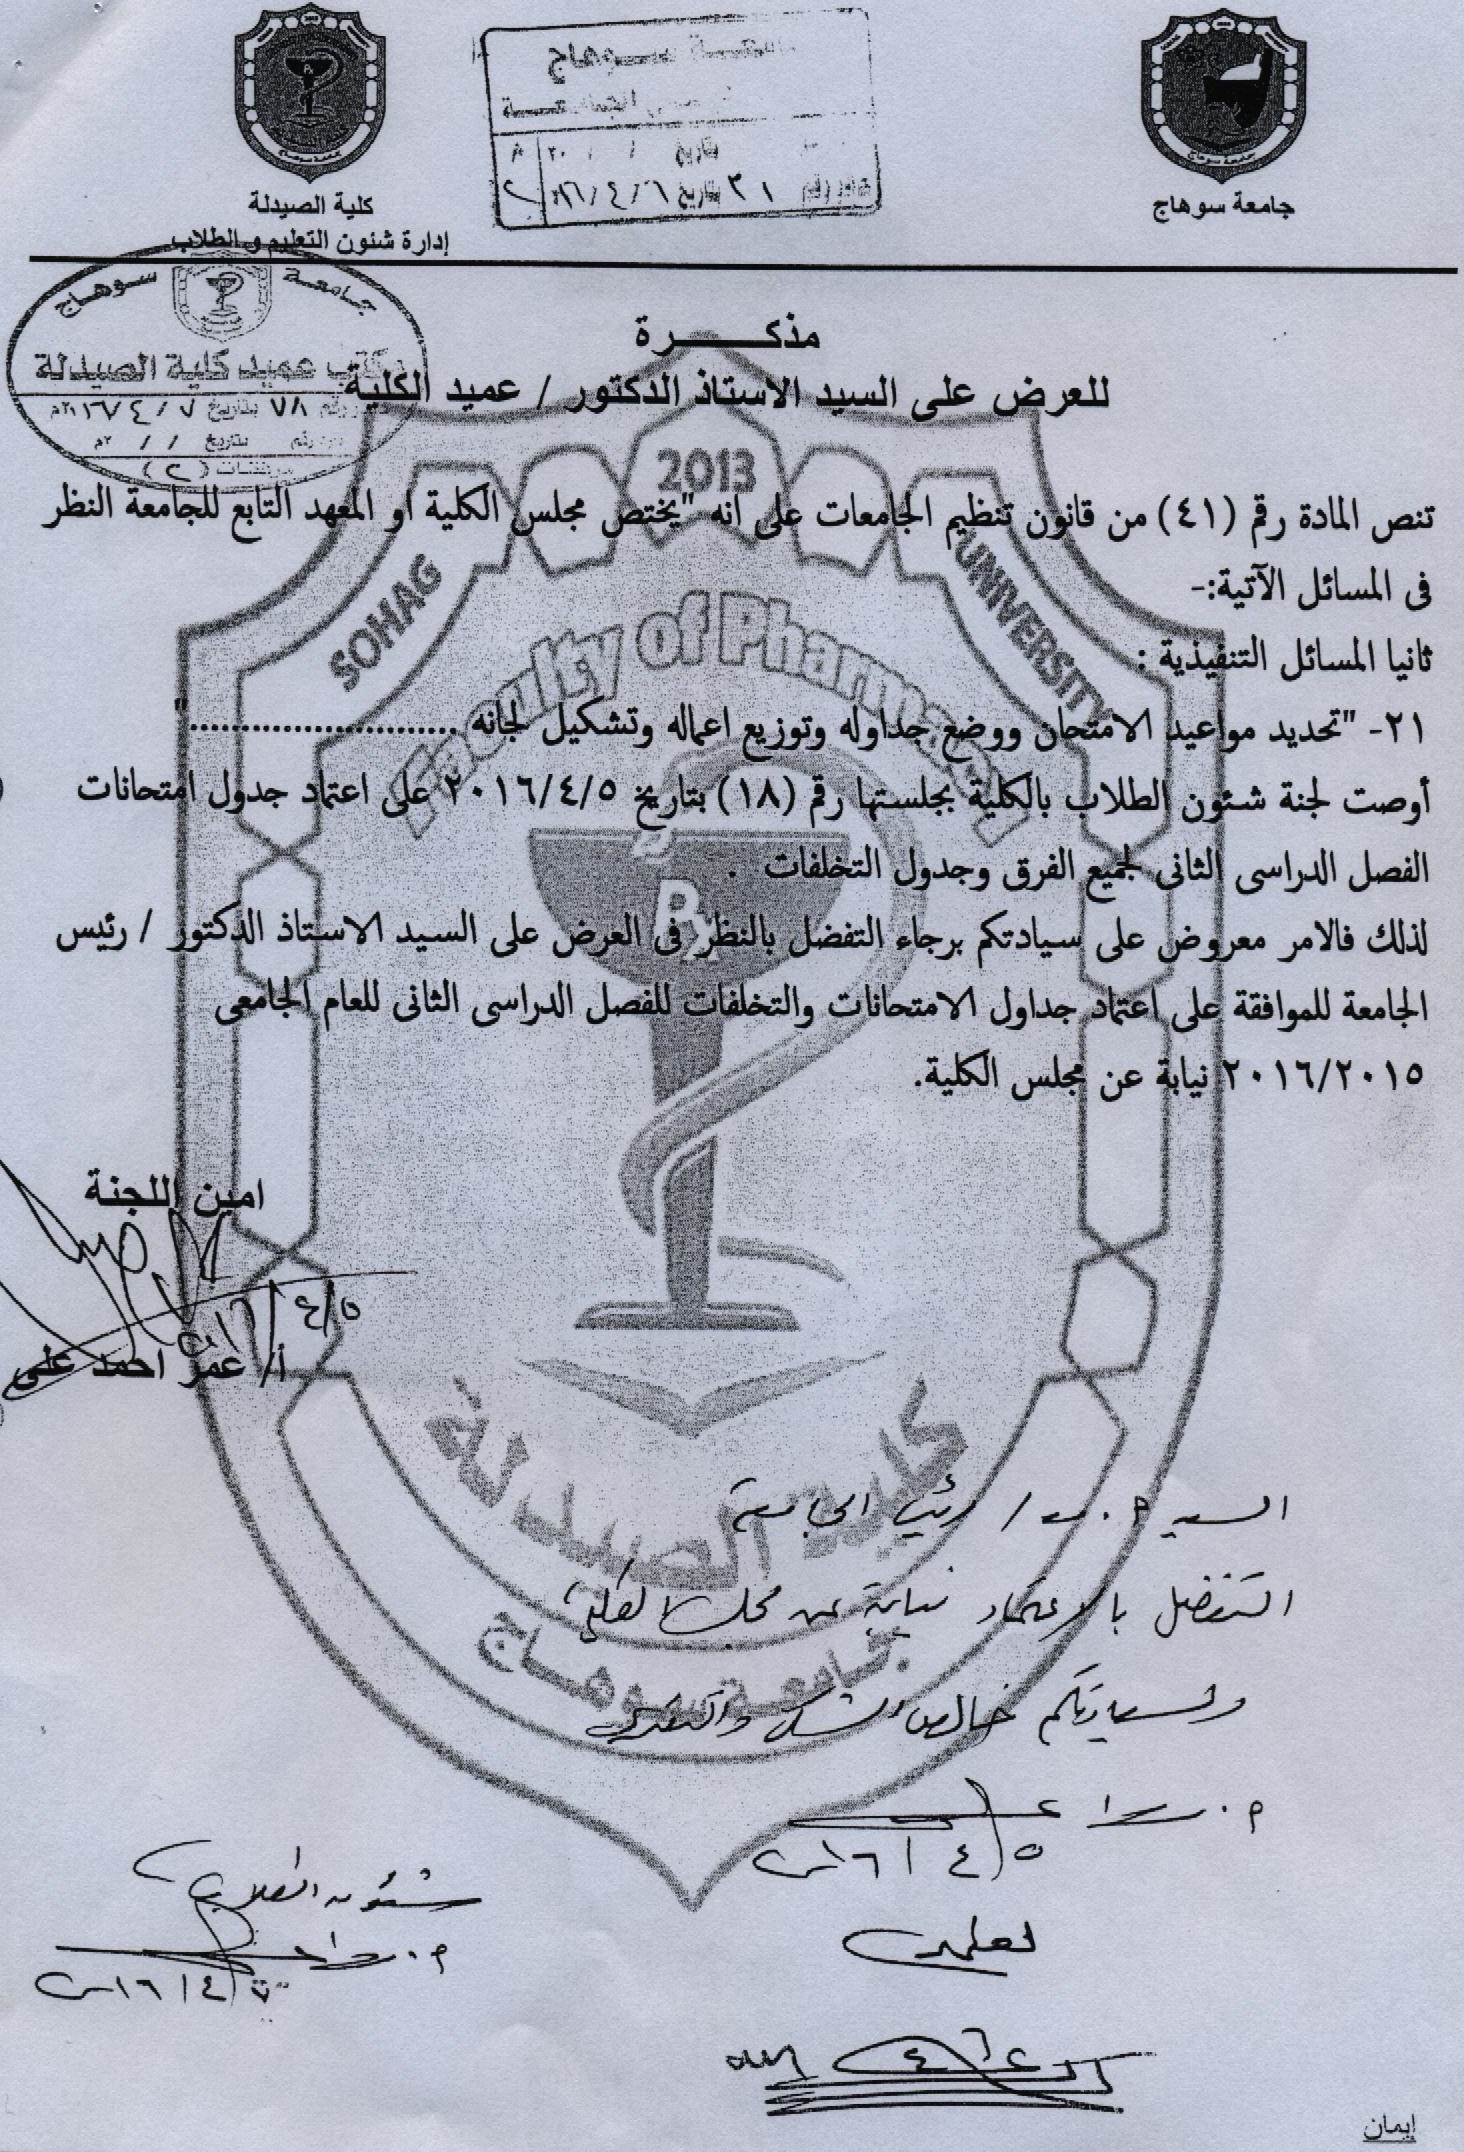 جامعة سوهاج
كلية الصيدلة
إدارة شئون التعليم و الطلاب
جامعة سوهاج
مكتب عميد كلية الصيدلة
رقم ٧٨ بتاريخ ٧ / ٤ / ٢٠١٦م
مذكـــــرة
للعرض على السيد الاستاذ الدكتور / عميد الكلية
تنص المادة رقم (٤١) من قانون تنظيم الجامعات على انه "يختص مجلس الكلية او المعهد التابع للجامعة النظر
فى المسائل الآتية:-
ثانيا المسائل التنفيذية :
٢١- "تحديد مواعيد الامتحان ووضع جداوله وتوزيع اعماله وتشكيل لجانه .........................."
أوصت لجنة شئون الطلاب بالكلية بجلستها رقم (١٨) بتاريخ ٢٠١٦/٤/٥ على اعتماد جدول امتحانات
الفصل الدراسى الثانى لجميع الفرق وجدول التخلفات .
لذلك فالامر معروض على سيادتكم برجاء التفضل بالنظر فى العرض على السيد الاستاذ الدكتور / رئيس
الجامعة للموافقة على اعتماد جداول الامتحانات والتخلفات للفصل الدراسى الثانى للعام الجامعى
٢٠١٦/٢٠١٥ نيابة عن مجلس الكلية.
امين اللجنة
أ/ عمر احمد على
2013
SOHAG UNIVERSITY
Faculty of Pharmacy
كلية الصيدلة
جامعة سوهاج
السيد أ.د / رئيس الجامعة
التفضل بالاعتماد نيابة عن مجلس الكلية
ولسعادتكم خالص الشكر والتقدير
شئون الطلاب
إيمان